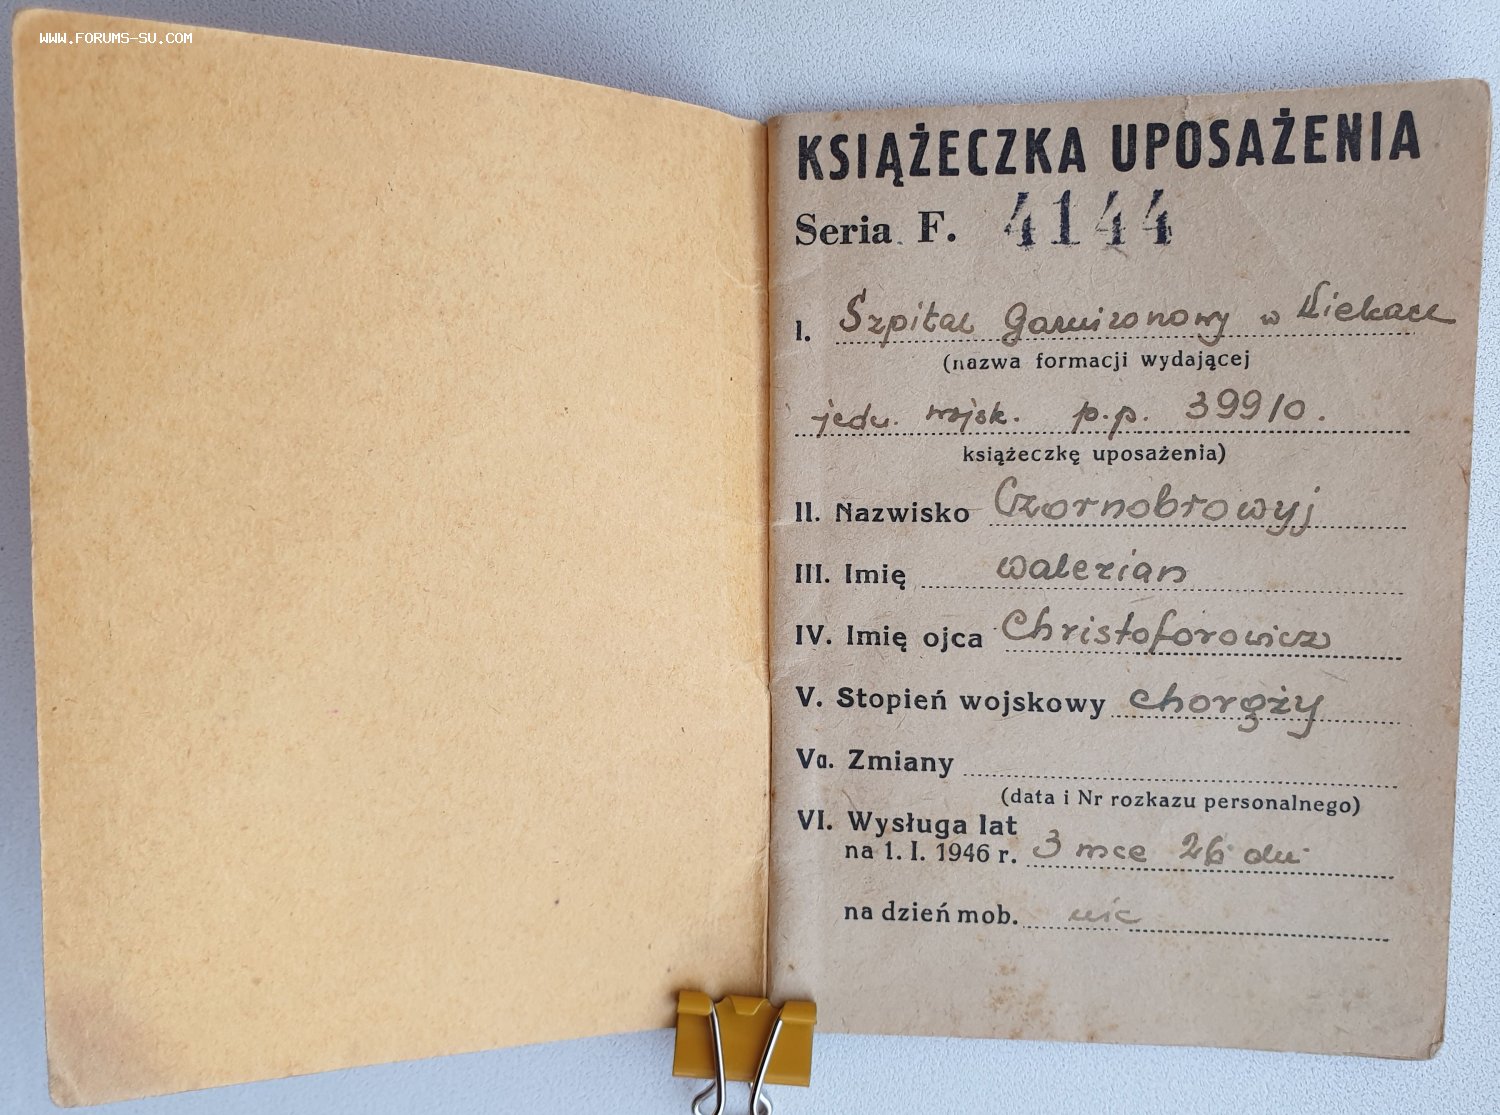 WWW.FORUMS-SU.COM
KSIĄŻECZKA UPOSAŻENIA
Seria F. 4144
I. Szpital Garnizonowy w Kiekacu
(nazwa formacji wydającej
jedn. wojsk. p.p. 39910.
książeczkę uposażenia)
II. Nazwisko Czornobrowyj
III. Imię Walerian
IV. Imię ojca Christoforowicz
V. Stopień wojskowy chorąży
Va. Zmiany
(data i Nr rozkazu personalnego)
VI. Wysługa lat
na 1. I. 1946 r. 3 mce 26 dni
na dzień mob. nic